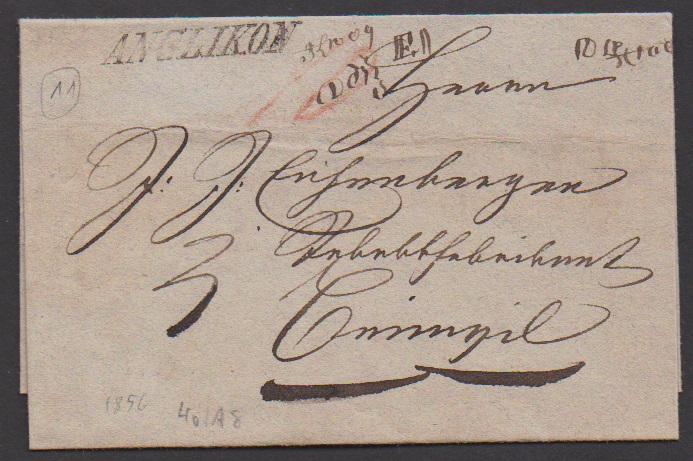 ANGLIKON
F.
11
Herrn
J: J: Eichenberger
3
Tabakfabrikant
Beinwyl
1856
40/A8